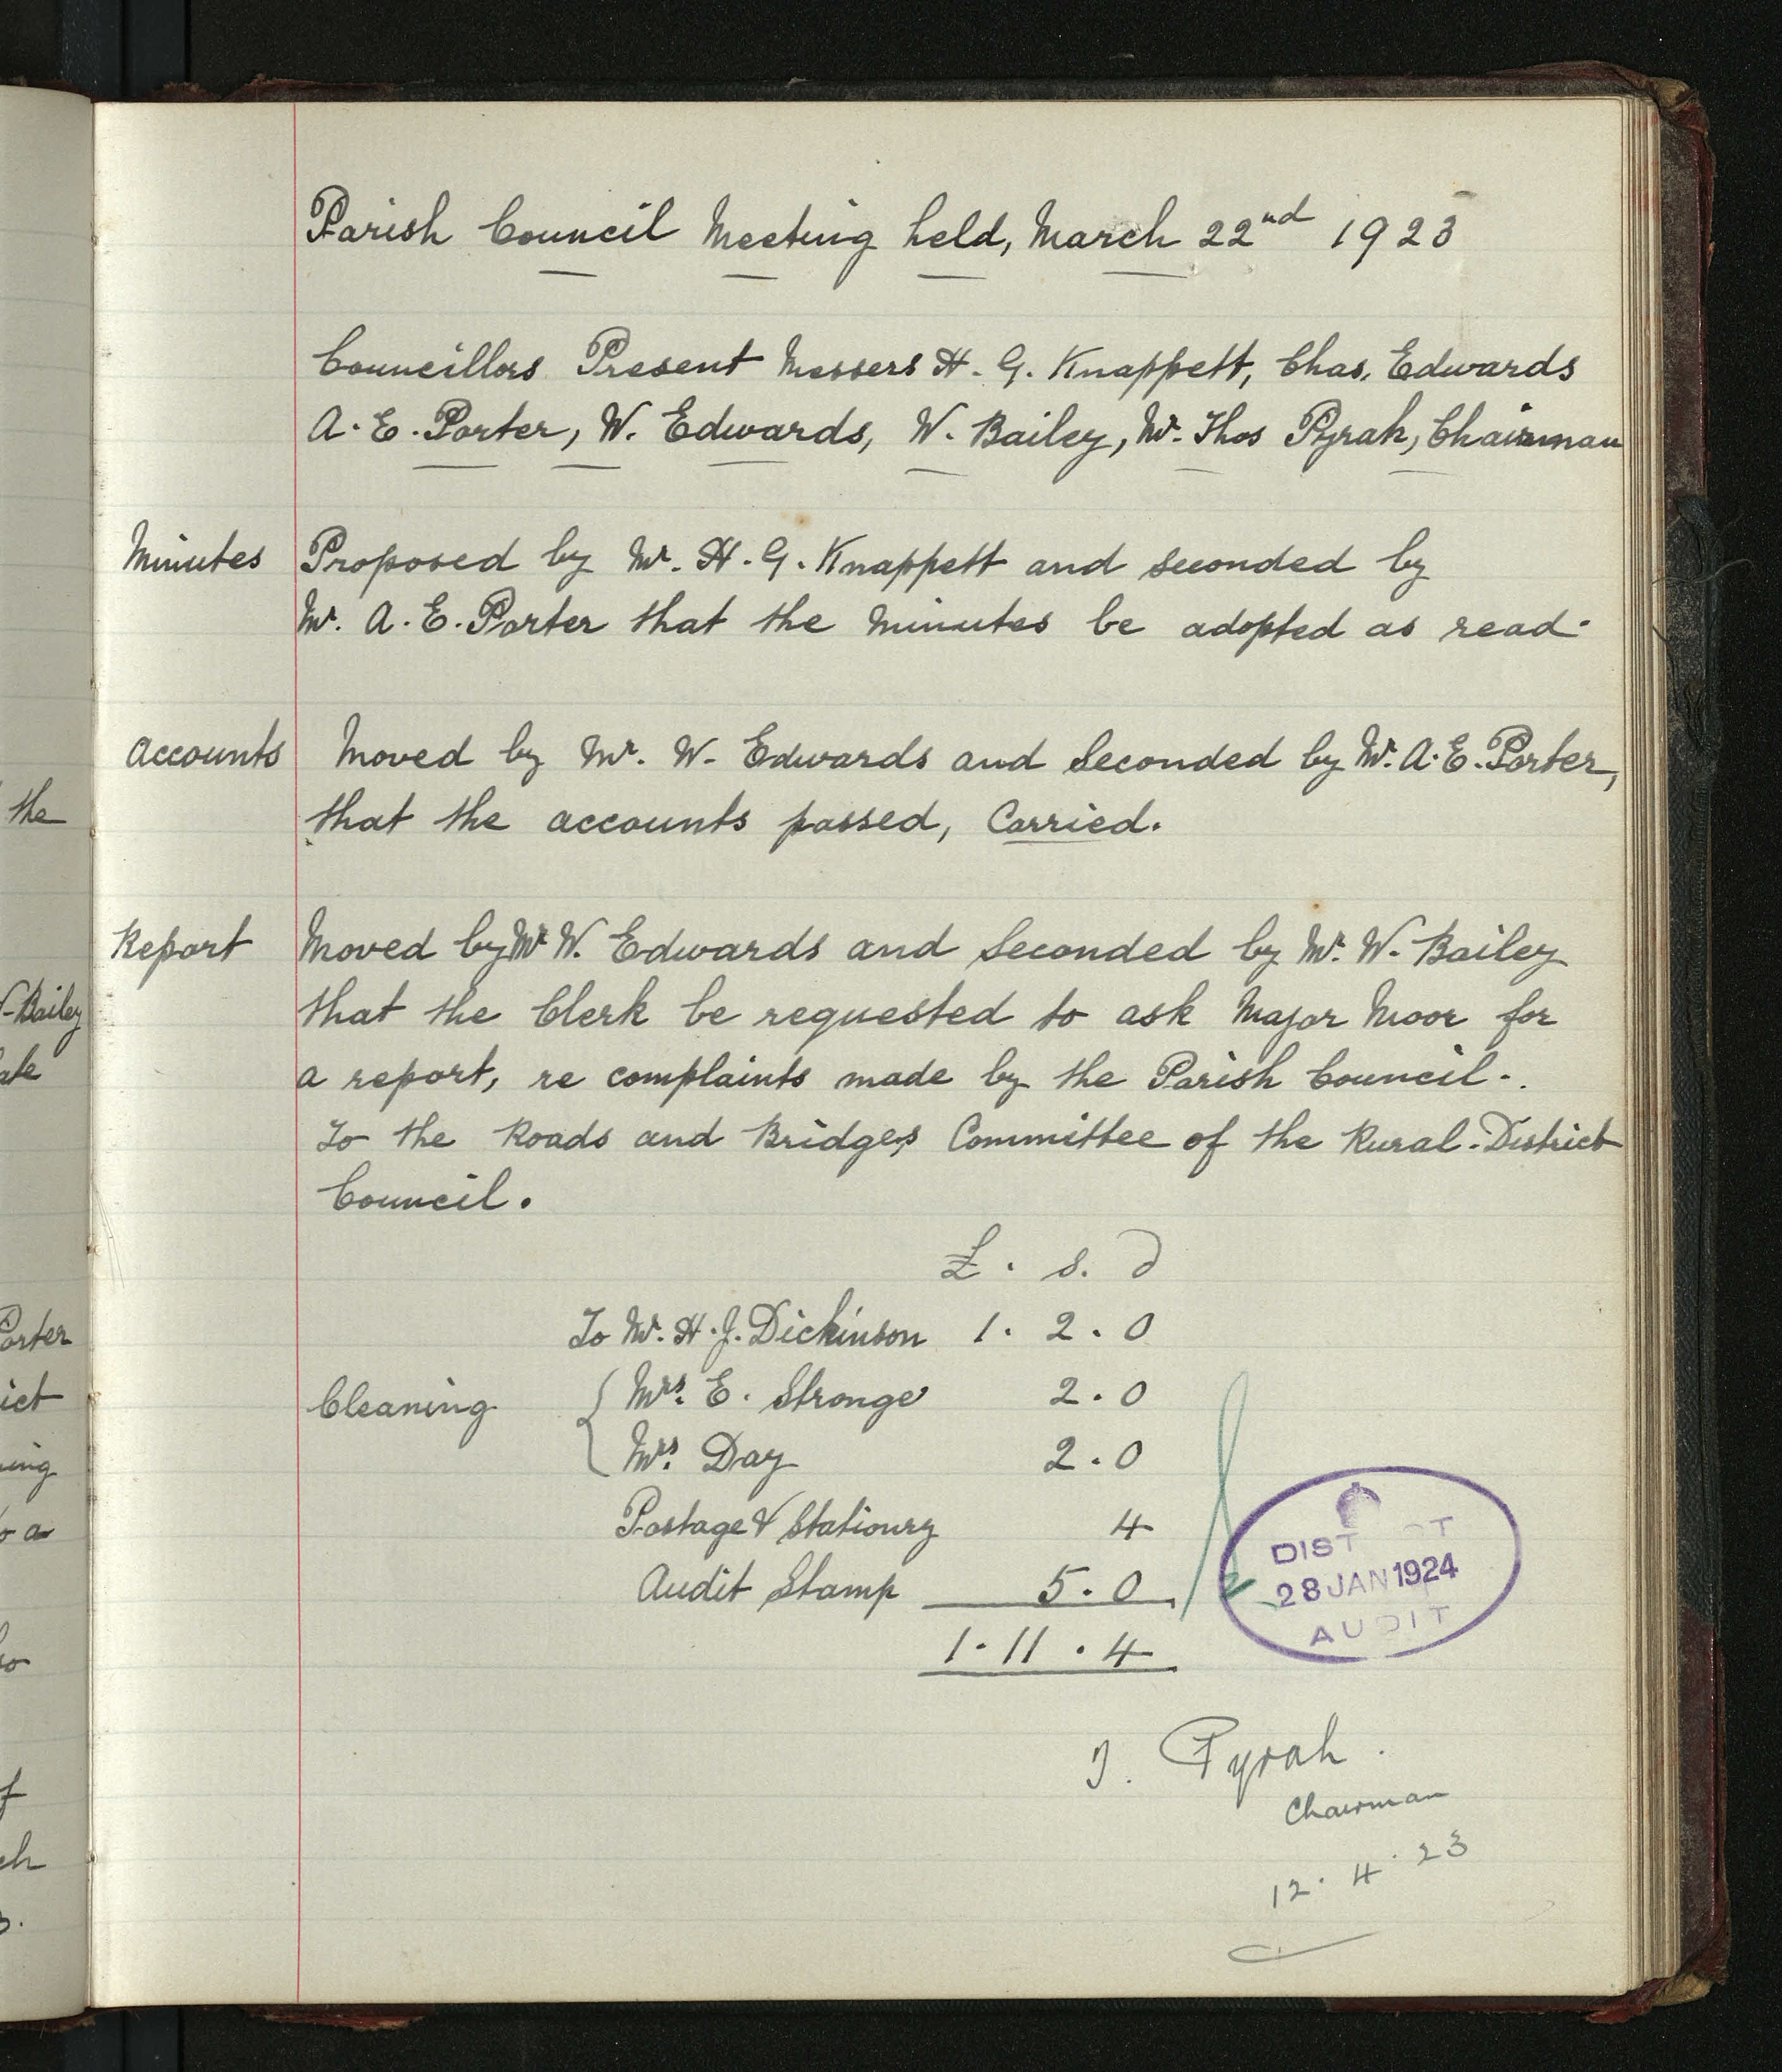 Parish Council Meeting held, March 22nd 1923
Councillors Present Messers H. G. Knappett, Chas. Edwards
A. E. Porter, W. Edwards, W. Bailey, Mr. Thos Pyrah, Chairman
Minutes Proposed by Mr. H. G. Knappett and seconded by
Mr. A. E. Porter that the minutes be adopted as read.
Accounts Moved by Mr. W. Edwards and Seconded by Mr. A. E. Porter,
that the accounts passed, Carried.
Report Moved by Mr W. Edwards and Seconded by Mr. W. Bailey
that the Clerk be requested to ask Major Moor for
a report, re complaints made by the Parish Council..
To the Roads and Bridges Committee of the Rural-District
Council.
£. s. d
To Mr. H. J. Dickinson 1. 2. 0
Cleaning { Mrs. E. Stronge 2. 0
Mrs. Day 2. 0
Postage & Stationry 4
Audit Stamp 5. 0
1. 11. 4
DIST CT
28 JAN 1924
AUDIT
T. Pyrah.
Chairman
12. 4. 23
the
W-Bailey
ate
Porter
ict
ing
a
so
f
ch
3.